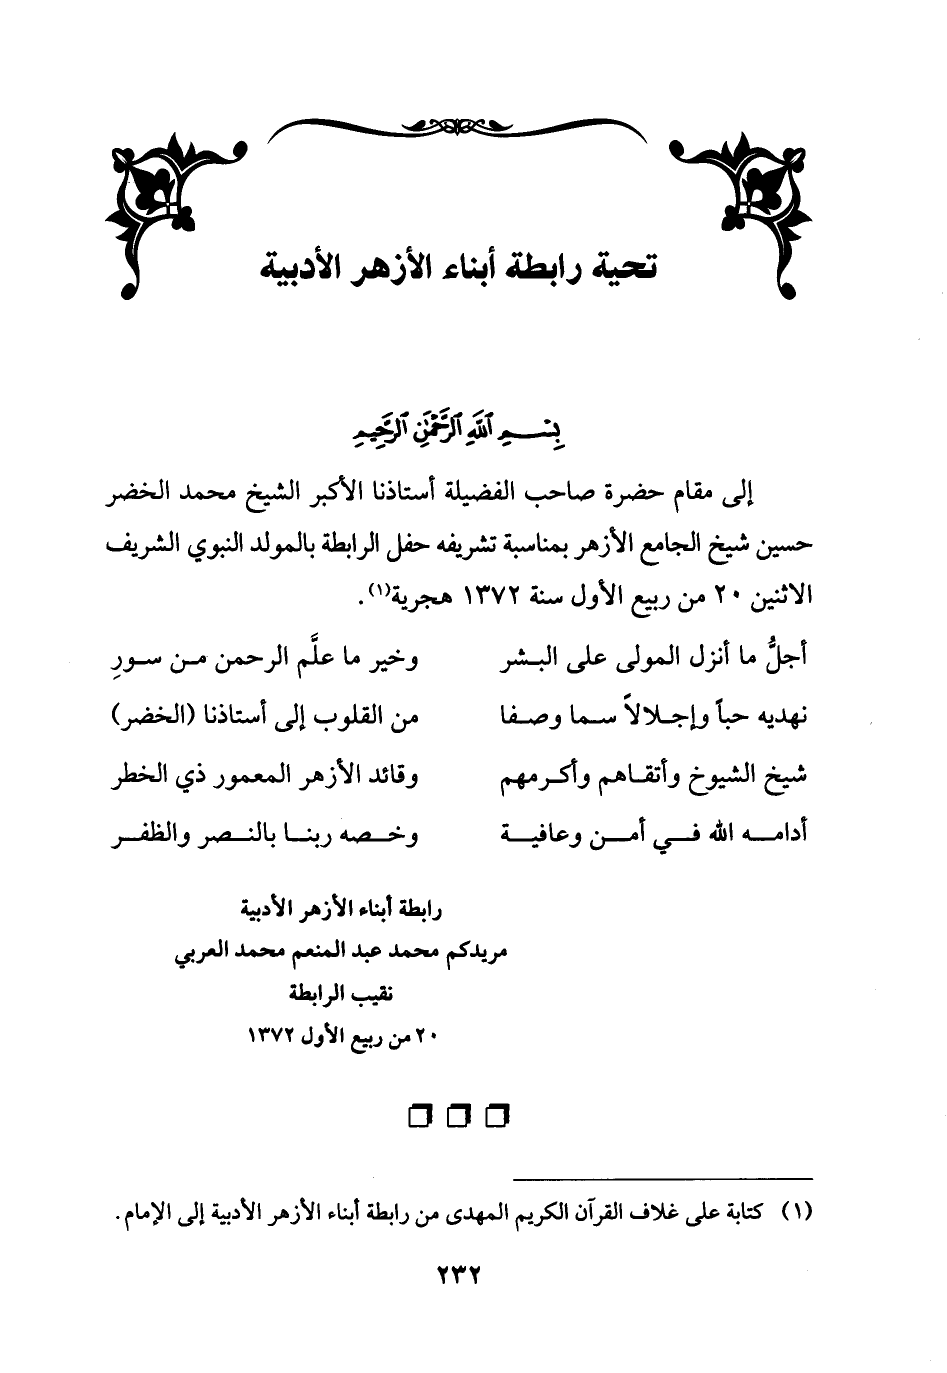 تحية رابطة أبناء الأزهر الأدبية
بِسْمِ ٱللَّهِ ٱلرَّحْمَٰنِ ٱلرَّحِيمِ
إلى مقام حضرة صاحب الفضيلة أستاذنا الأكبر الشيخ محمد الخضر
حسين شيخ الجامع الأزهر بمناسبة تشريفه حفل الرابطة بالمولد النبوي الشريف
الاثنين ٢٠ من ربيع الأول سنة ١٣٧٢ هجرية(١).
أجلُّ ما أنزل المولى على البشر وخير ما علَّم الرحمن من سورِ
نهديه حباً وإجلالاً سما وصفا من القلوب إلى أستاذنا (الخضر)
شيخ الشيوخ وأتقاهم وأكرمهم وقائد الأزهر المعمور ذي الخطر
أدامه الله في أمن وعافية وخصه ربنا بالنصر والظفر
رابطة أبناء الأزهر الأدبية
مريدكم محمد عبد المنعم محمد العربي
نقيب الرابطة
٢٠ من ربيع الأول ١٣٧٢
(١) كتابة على غلاف القرآن الكريم المهدى من رابطة أبناء الأزهر الأدبية إلى الإمام.
٢٣٢